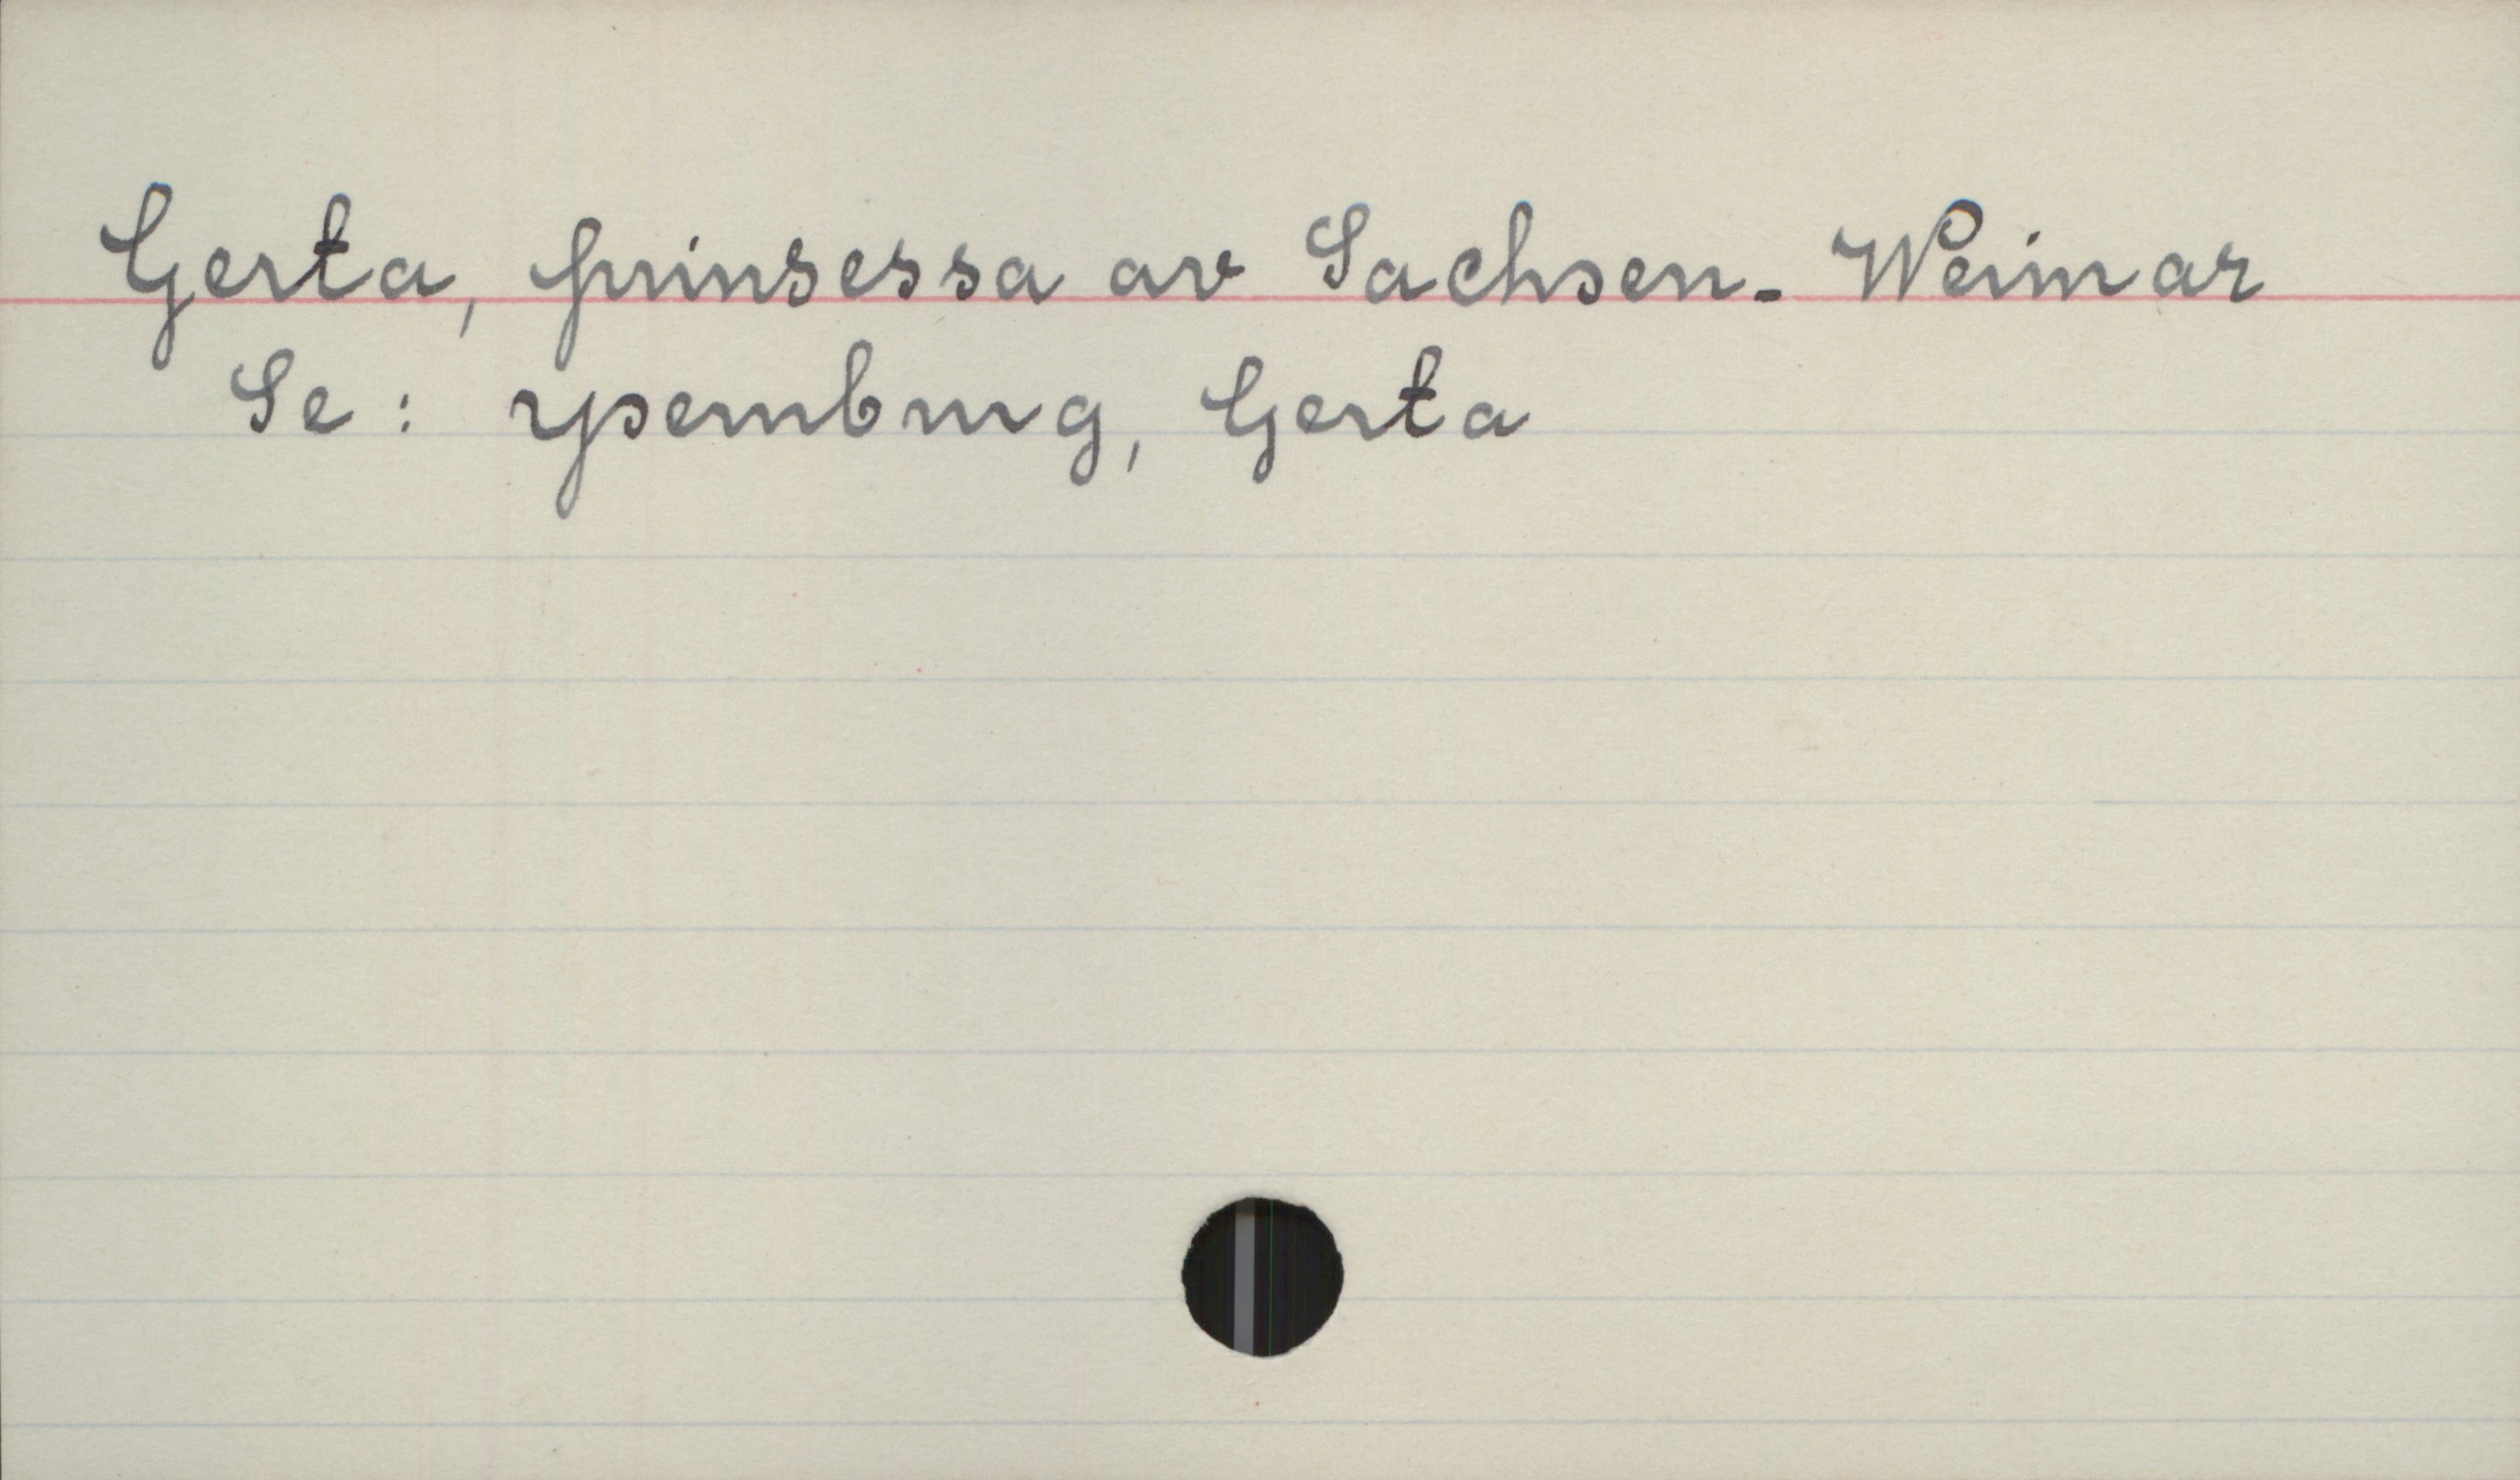 Gerta, prinsessa av Sachsen-Weimar
Se: Ysemburg, Gerta